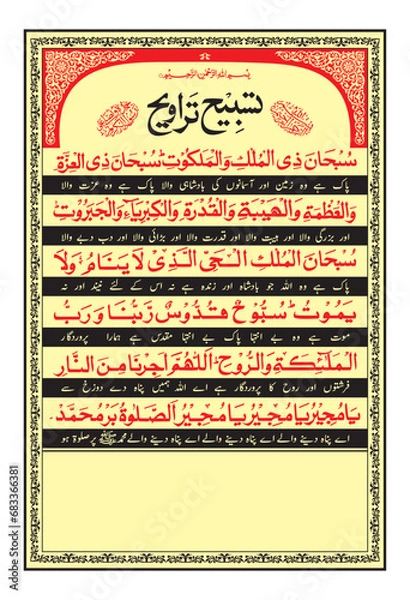 بسم اللہ الرحمن الرحیم
تسبیح تراویح
سُبْحَانَ ذِی الْمُلْکِ وَالْمَلَکُوْتِ سُبْحَانَ ذِی الْعِزَّۃِ
پاک ہے وہ زمین اور آسمانوں کی بادشاہی والا پاک ہے وہ عزت والا
وَالْعَظَمَۃِ وَالْھَیْبَۃِ وَالْقُدْرَۃِ وَالْکِبْرِیَآءِ وَالْجَبَرُوْتِ
اور بزرگی والا اور ہیبت والا اور قدرت والا اور بڑائی والا اور دب دبے والا
سُبْحَانَ الْمُلْکِ الْحَیِّ الَّذِیْ لَا یَنَامُ وَلَا
پاک ہے وہ اللہ جو بادشاہ اور زندہ ہے نہ اس کے لئے نیند اور نہ
یَمُوْتُ سُبُّوْحٌ قُدُّوْسٌ رَبُّنَا وَرَبُّ
موت ہے وہ بے انتہا پاک بے انتہا مقدس ہے ہمارا پروردگار
الْمَلٰٓئِکَۃِ وَالرُّوْحِ اَللّٰھُمَّ اَجِرْنَا مِنَ النَّارِ
فرشتوں اور روح کا پروردگار ہے اے اللہ ہمیں پناہ دے دوزخ سے
یَا مُجِیْرُ یَا مُجِیْرُ یَا مُجِیْرُ الصَّلٰوۃُ بَرْ مُحَمَّدْ
اے پناہ دینے والے اے پناہ دینے والے اے پناہ دینے والے محمد ﷺ پر صلوٰۃ ہو
Adobe Stock | #683366381